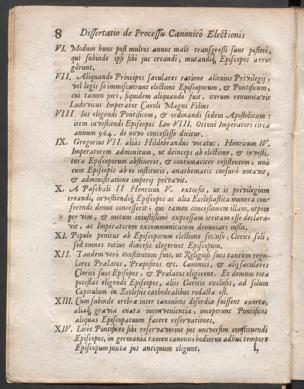 8 Dissertatio de Processu Canonicò Electionis
VI. Modum hunc post multos annos malè transgressi sunt posteri,
qui subinde ipsi sibi jus creandi, mutandiq́; Episcopos arro-
gârunt.
VII. Aliquando Principes sæculares ratione alicuius Privilegij,
vel legis se immiscuerunt electioni Episcoporum, & Pontificum,
cui tamen juri, siquidem aliquando fuit, iterum renuntiavit
Ludovicus Imperator Caroli Magni Filius
VIII. Ius eligendi Pontificem, & ordinandi sedem Apostolicam:
item investiendi Episcopos Leo VIII. Ottoni Imperatori circa
annum 964. de novo concessisse dicitur.
IX. Gregorius VII. aliàs Hildebrandus vocatus, Henricum IV.
Imperatorem admonitum, ut deinceps ab electione, & investi-
tura Episcoporum abstineret, & contumaciter resistentem, unà
cum Episcopis ab eo institutis, anathematis censurâ notavit,
& administratione imperij privavit.
X. A Paschali II Henricus V. extorsit, ut is privilegium
creandi, investiendiq́; Episcopos ac alia Ecclesiastica munera con-
ferendi denuò concesserit: qui tamen concessionem illam, utpote
per vim, & metum iniustissimè expressam irritam esse declara-
vit, ac Imperatorem excommunicatum denuntiari iussit.
XI. Populo penitus ab Episcoporum electione secluso, Clerici soli,
sed omnes totius diœcesis elegerunt Episcopum.
XII. Tandem verò constitutum fuit, ut Religiosi unà cum
Prælatos, Præpositos &c. Canonicos, & alij sæculares
Clerici suos Episcopos, & Prælatos eligerent. Et demùm tota
potestas eligendi Episcopos, alijs Clericis exclusis, ad solum
Capitulum in Ecclesijs cathedralibus redacta est.
XIII. Cùm subinde crebræ inter canonicos discordiæ fuissent exortæ,
aliáq́; gravia enata inconvenientia, inceperunt Pontifices
aliquas Episcopatuum facere reservationes,
XIV. Licèt Pontifices sibi reservaverint jus universim constituendi
Episcopos, in germania tamen canonici hodierno adhuc tempore
Episcopum juxta jus antiquum eligunt.